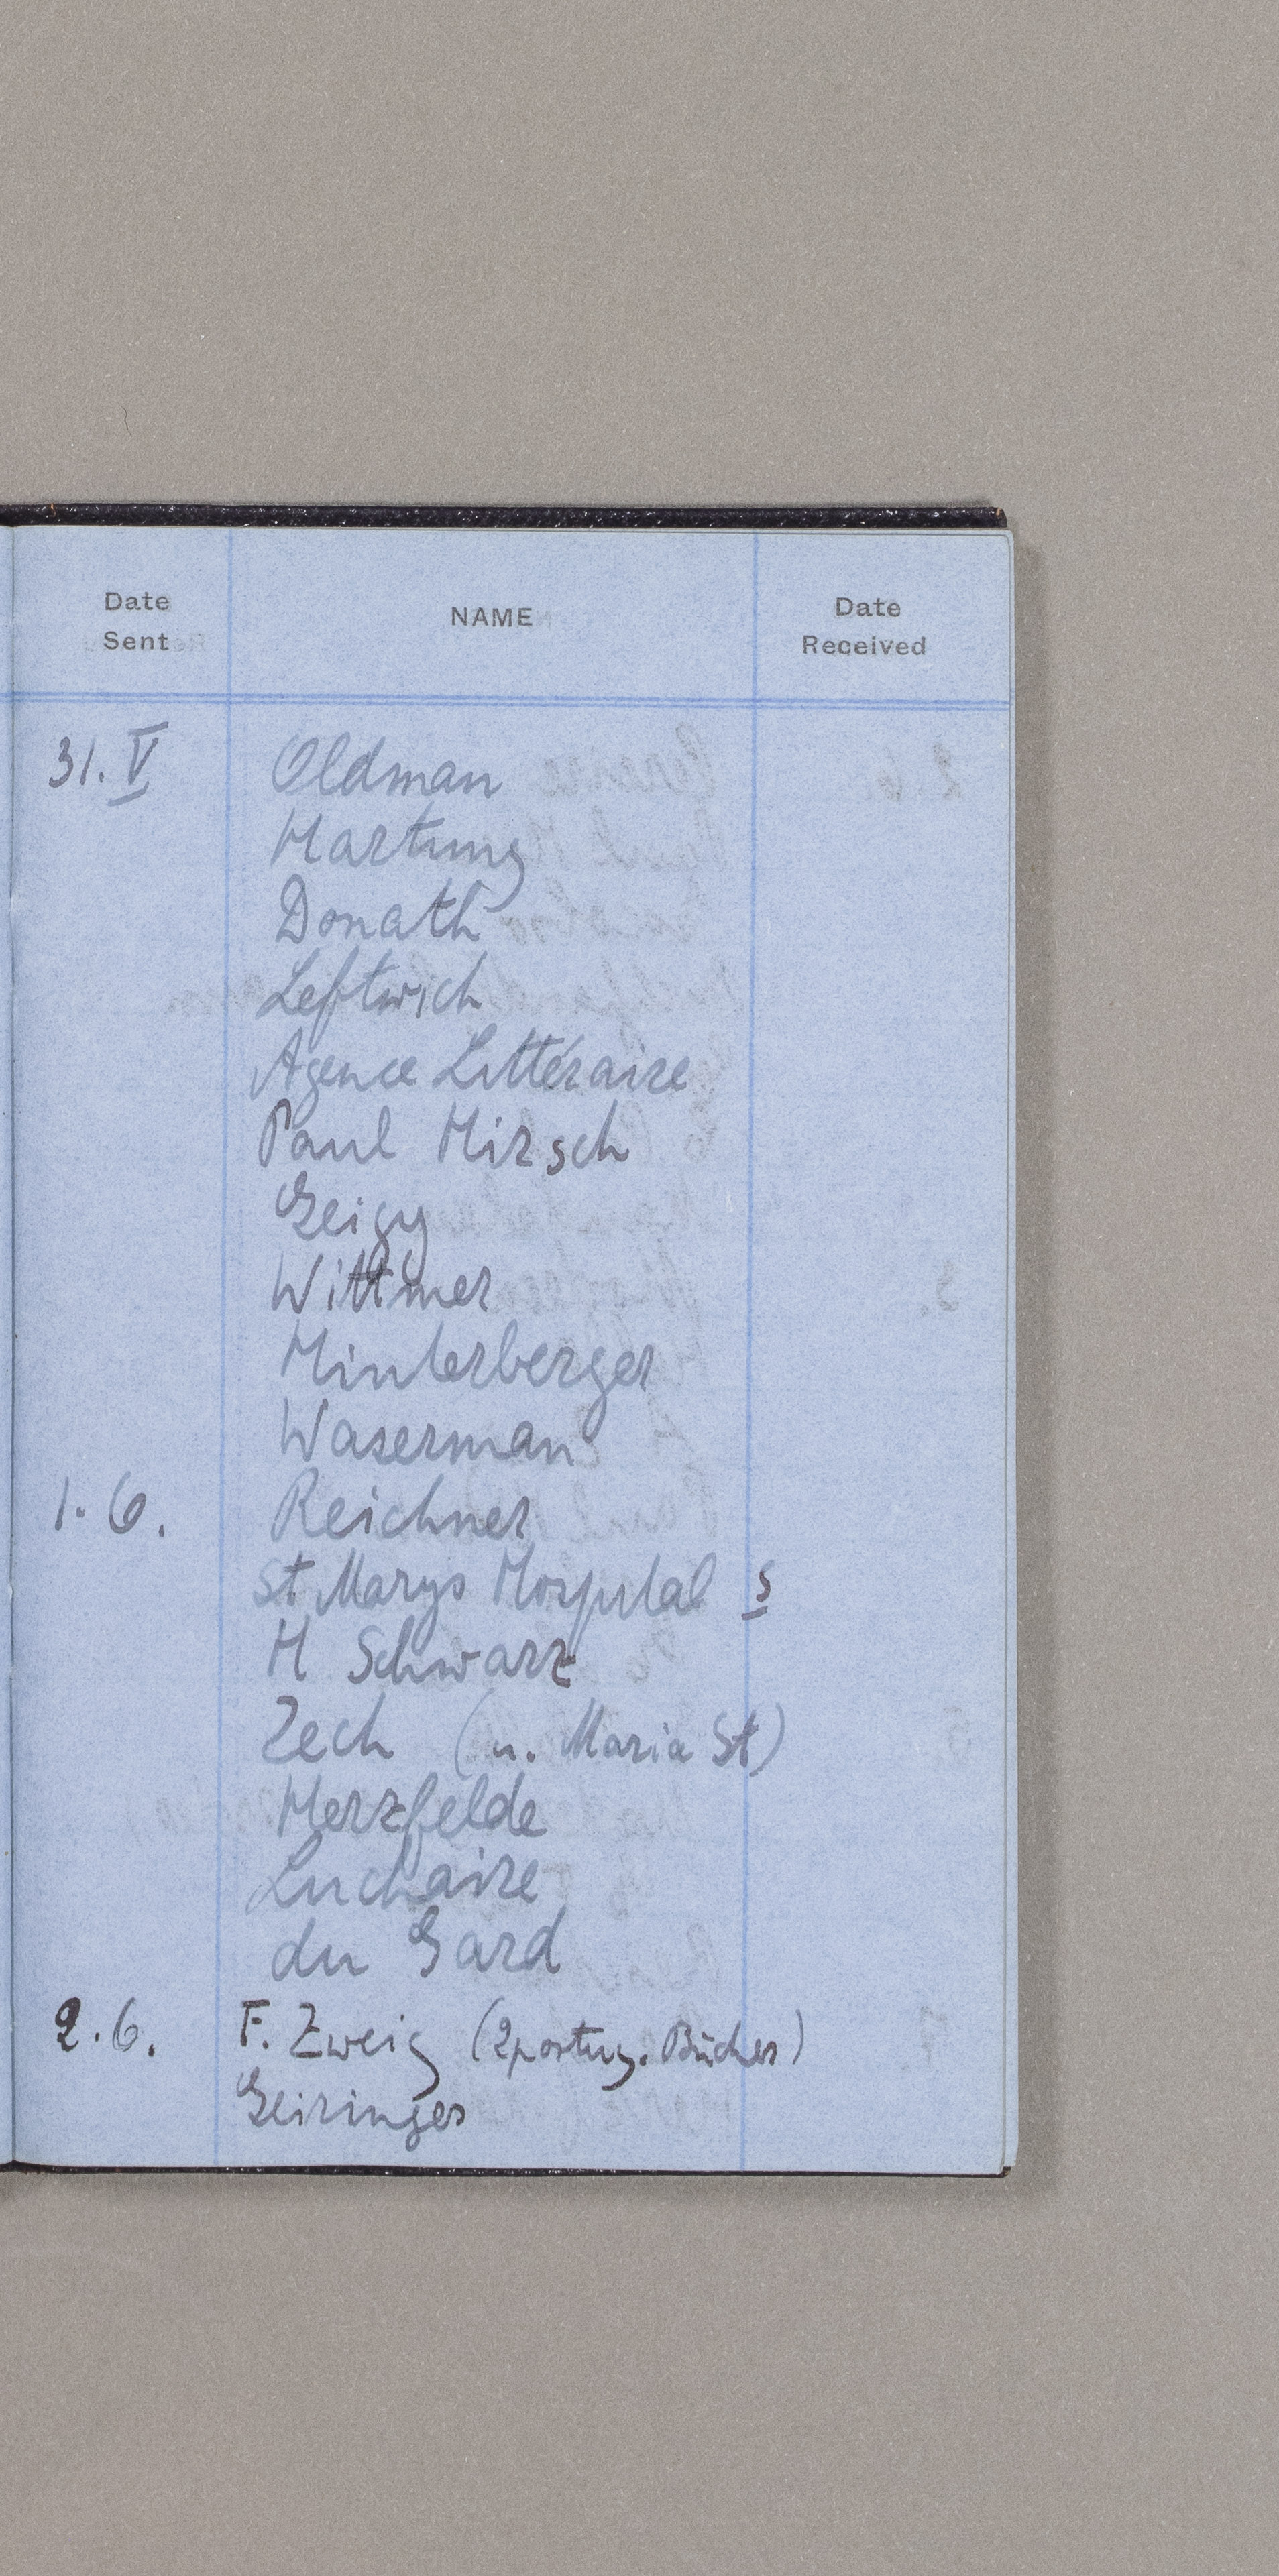 Date Sent NAME Date Received
31. V Oldman
Hartung
Donath
Leftwich
Agence Littéraire
Paul Hirsch
Geigy
Wittmer
Hinterberger
Waserman
1. 6. Reichner
St Marys Hospital s
H Schwarz
Zech (u. Maria St)
Herzfelde
Luchaire
du Gard
2. 6. F. Zweig (2 portug. Bücher)
Geiringer